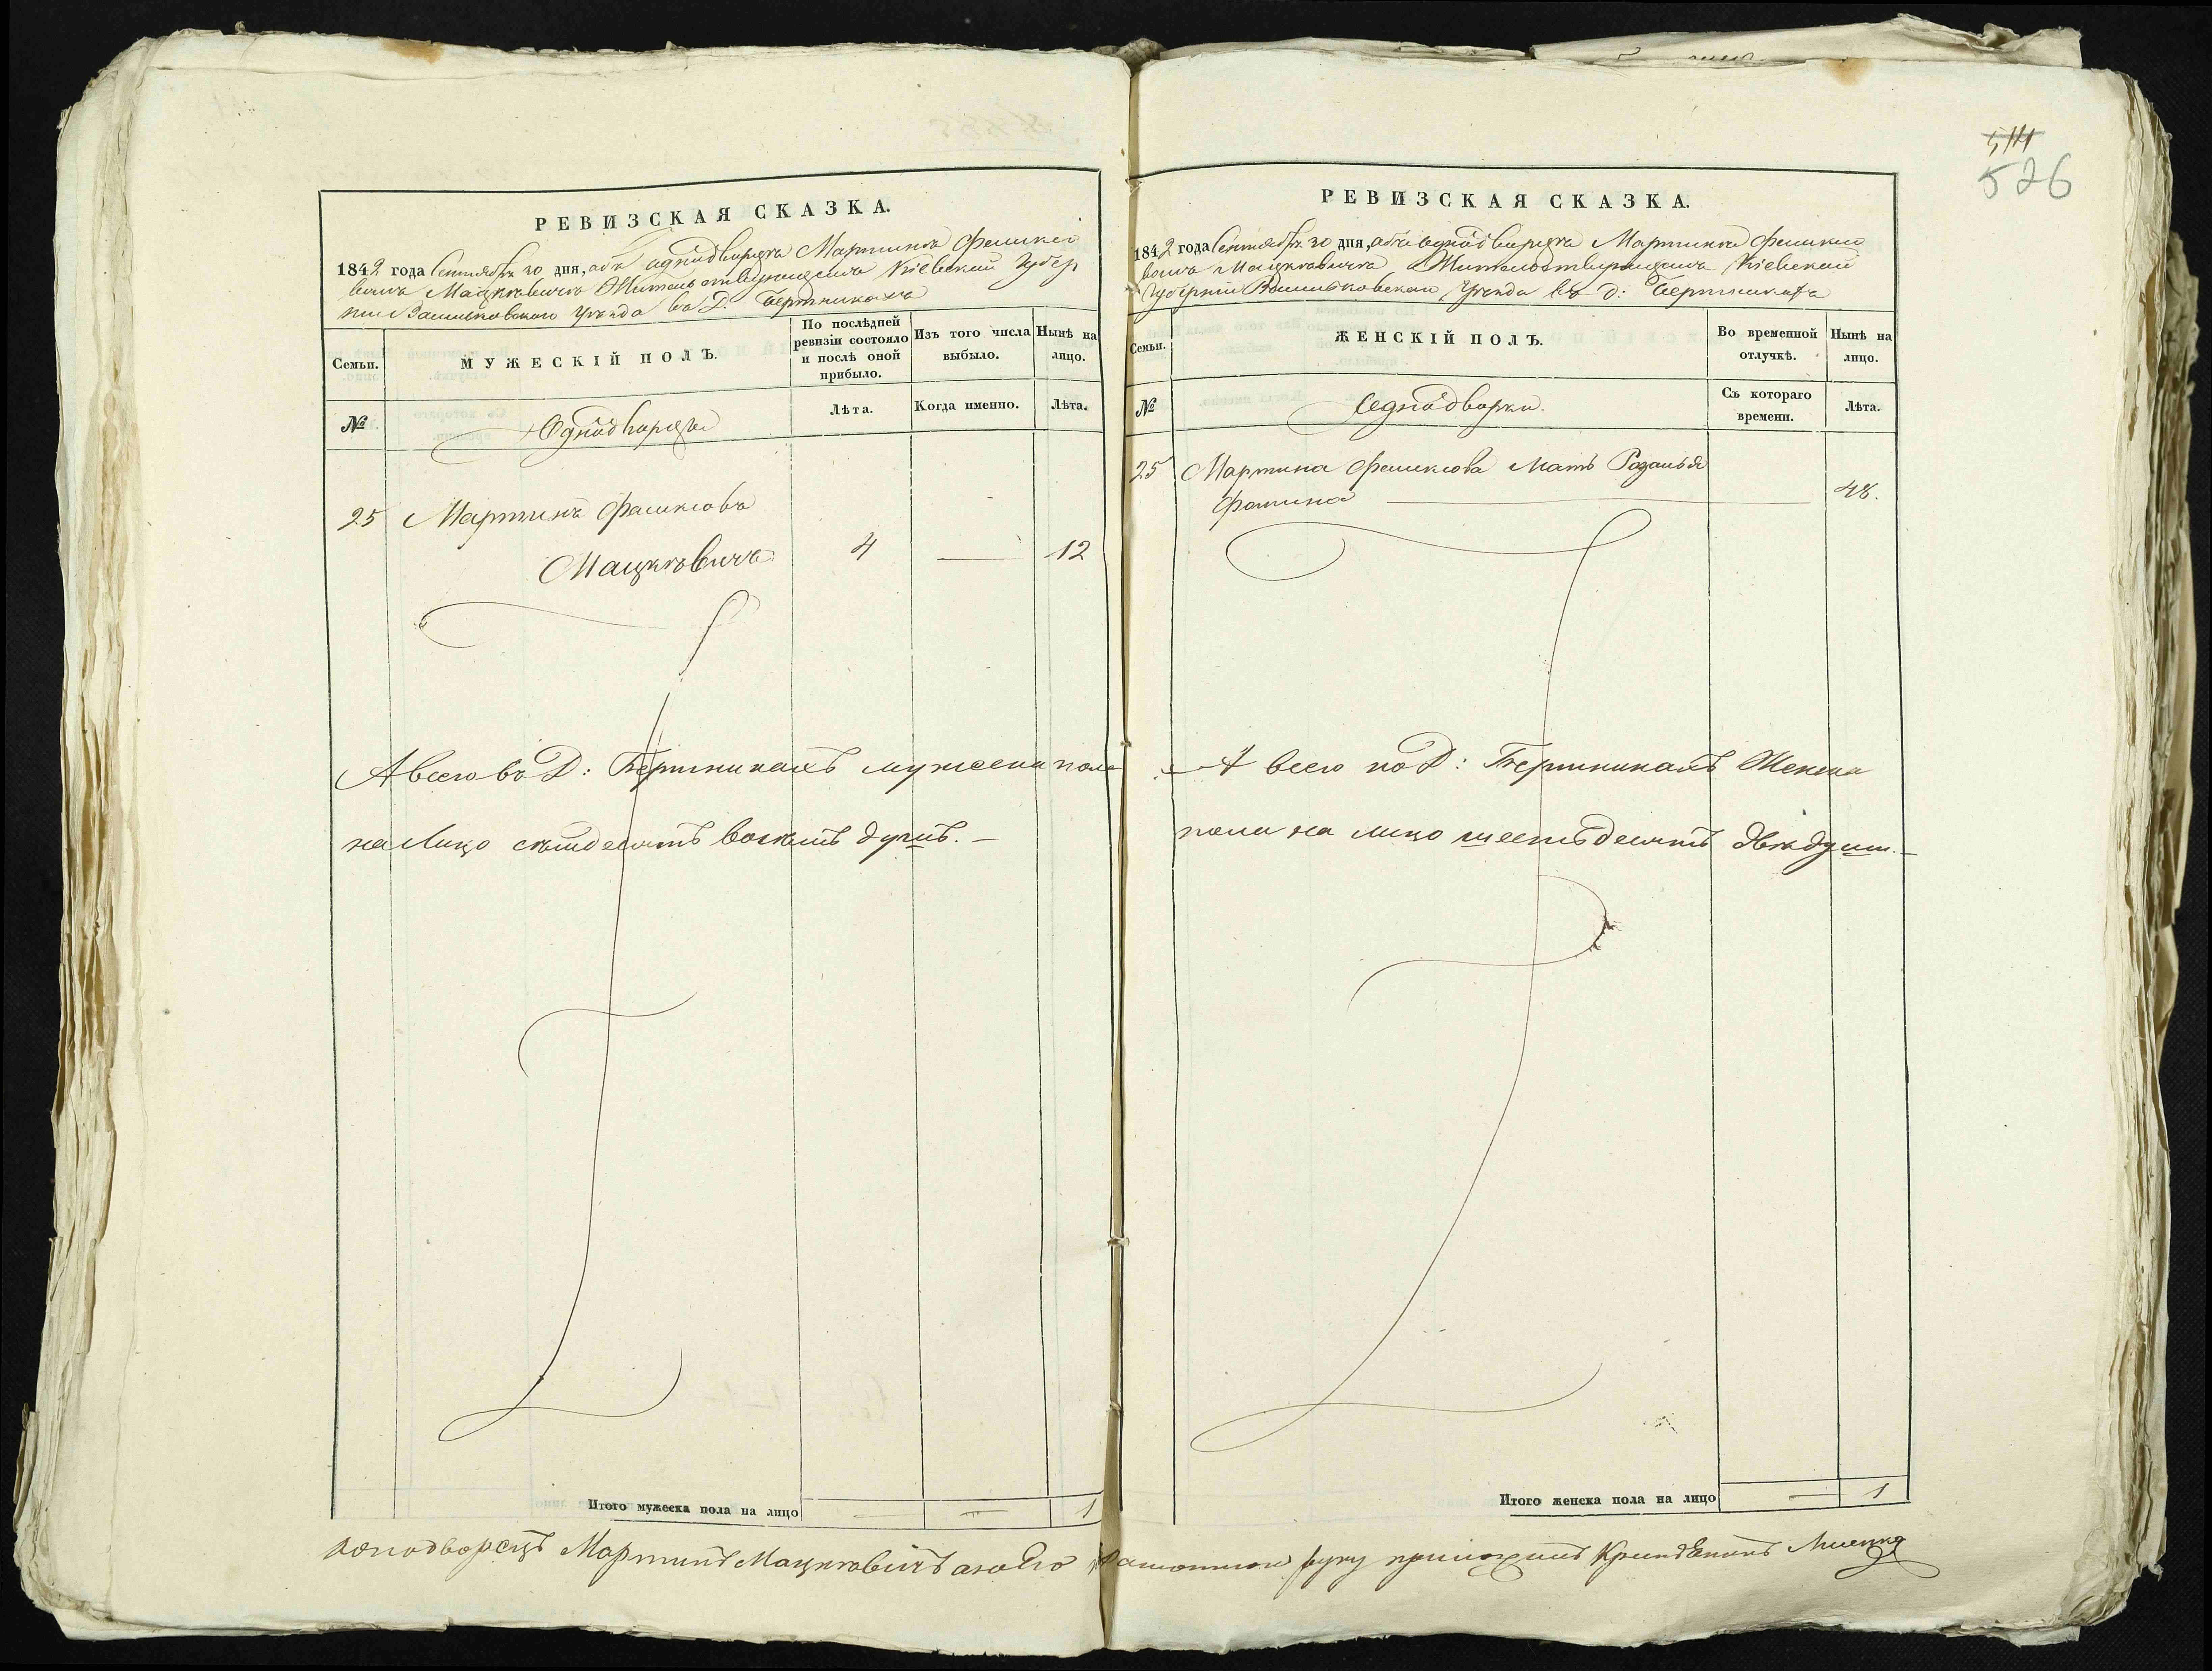 РЕВИЗСКАЯ СКАЗКА.
1842 года Сентября 30 дня, объ однодворцѣ Мартинѣ Феликсо
вичѣ Мацкевичѣ Жительствующемъ Кіевской Губер
ніи Васильковскаго Уѣзда въ Д. Бертникахъ
Семьи.
МУЖЕСКІЙ ПОЛЪ.
По послѣдней ревизіи состояло и послѣ оной прибыло.
Изъ того числа выбыло.
Нынѣ на лицо.
№
Однодворцы
Лѣта.
Когда именно.
Лѣта.
25 Мартинъ Феликсовъ
Мацкевичъ 4 — 12
А всего въ Д: Бертникахъ мужеска пола
на Лицо семдесятъ восемь душъ. —
Итого мужеска пола на лицо — — 1
514
526
РЕВИЗСКАЯ СКАЗКА.
1842 года Сентября 30 дня, объ однодворцѣ Мартинѣ Феликсо
вичѣ Мацкевичѣ Жительствующемъ Кіевской
Губерніи Васильковскаго Уѣзда въ д: Бертникахъ
Семьи.
ЖЕНСКІЙ ПОЛЪ.
Во временной отлучкѣ.
Нынѣ на лицо.
№
Однодворки.
Съ котораго времени.
Лѣта.
25 Мартина Феликсова Мать Розалія
Фомина — 48.
А всего по Д: Бертникамъ Женска
пола на лицо шестьдесятъ двѣ душ. —
Итого женска пола на лицо — 1
однодворецъ Мартинъ Мацкевичъ а за его руку приложилъ